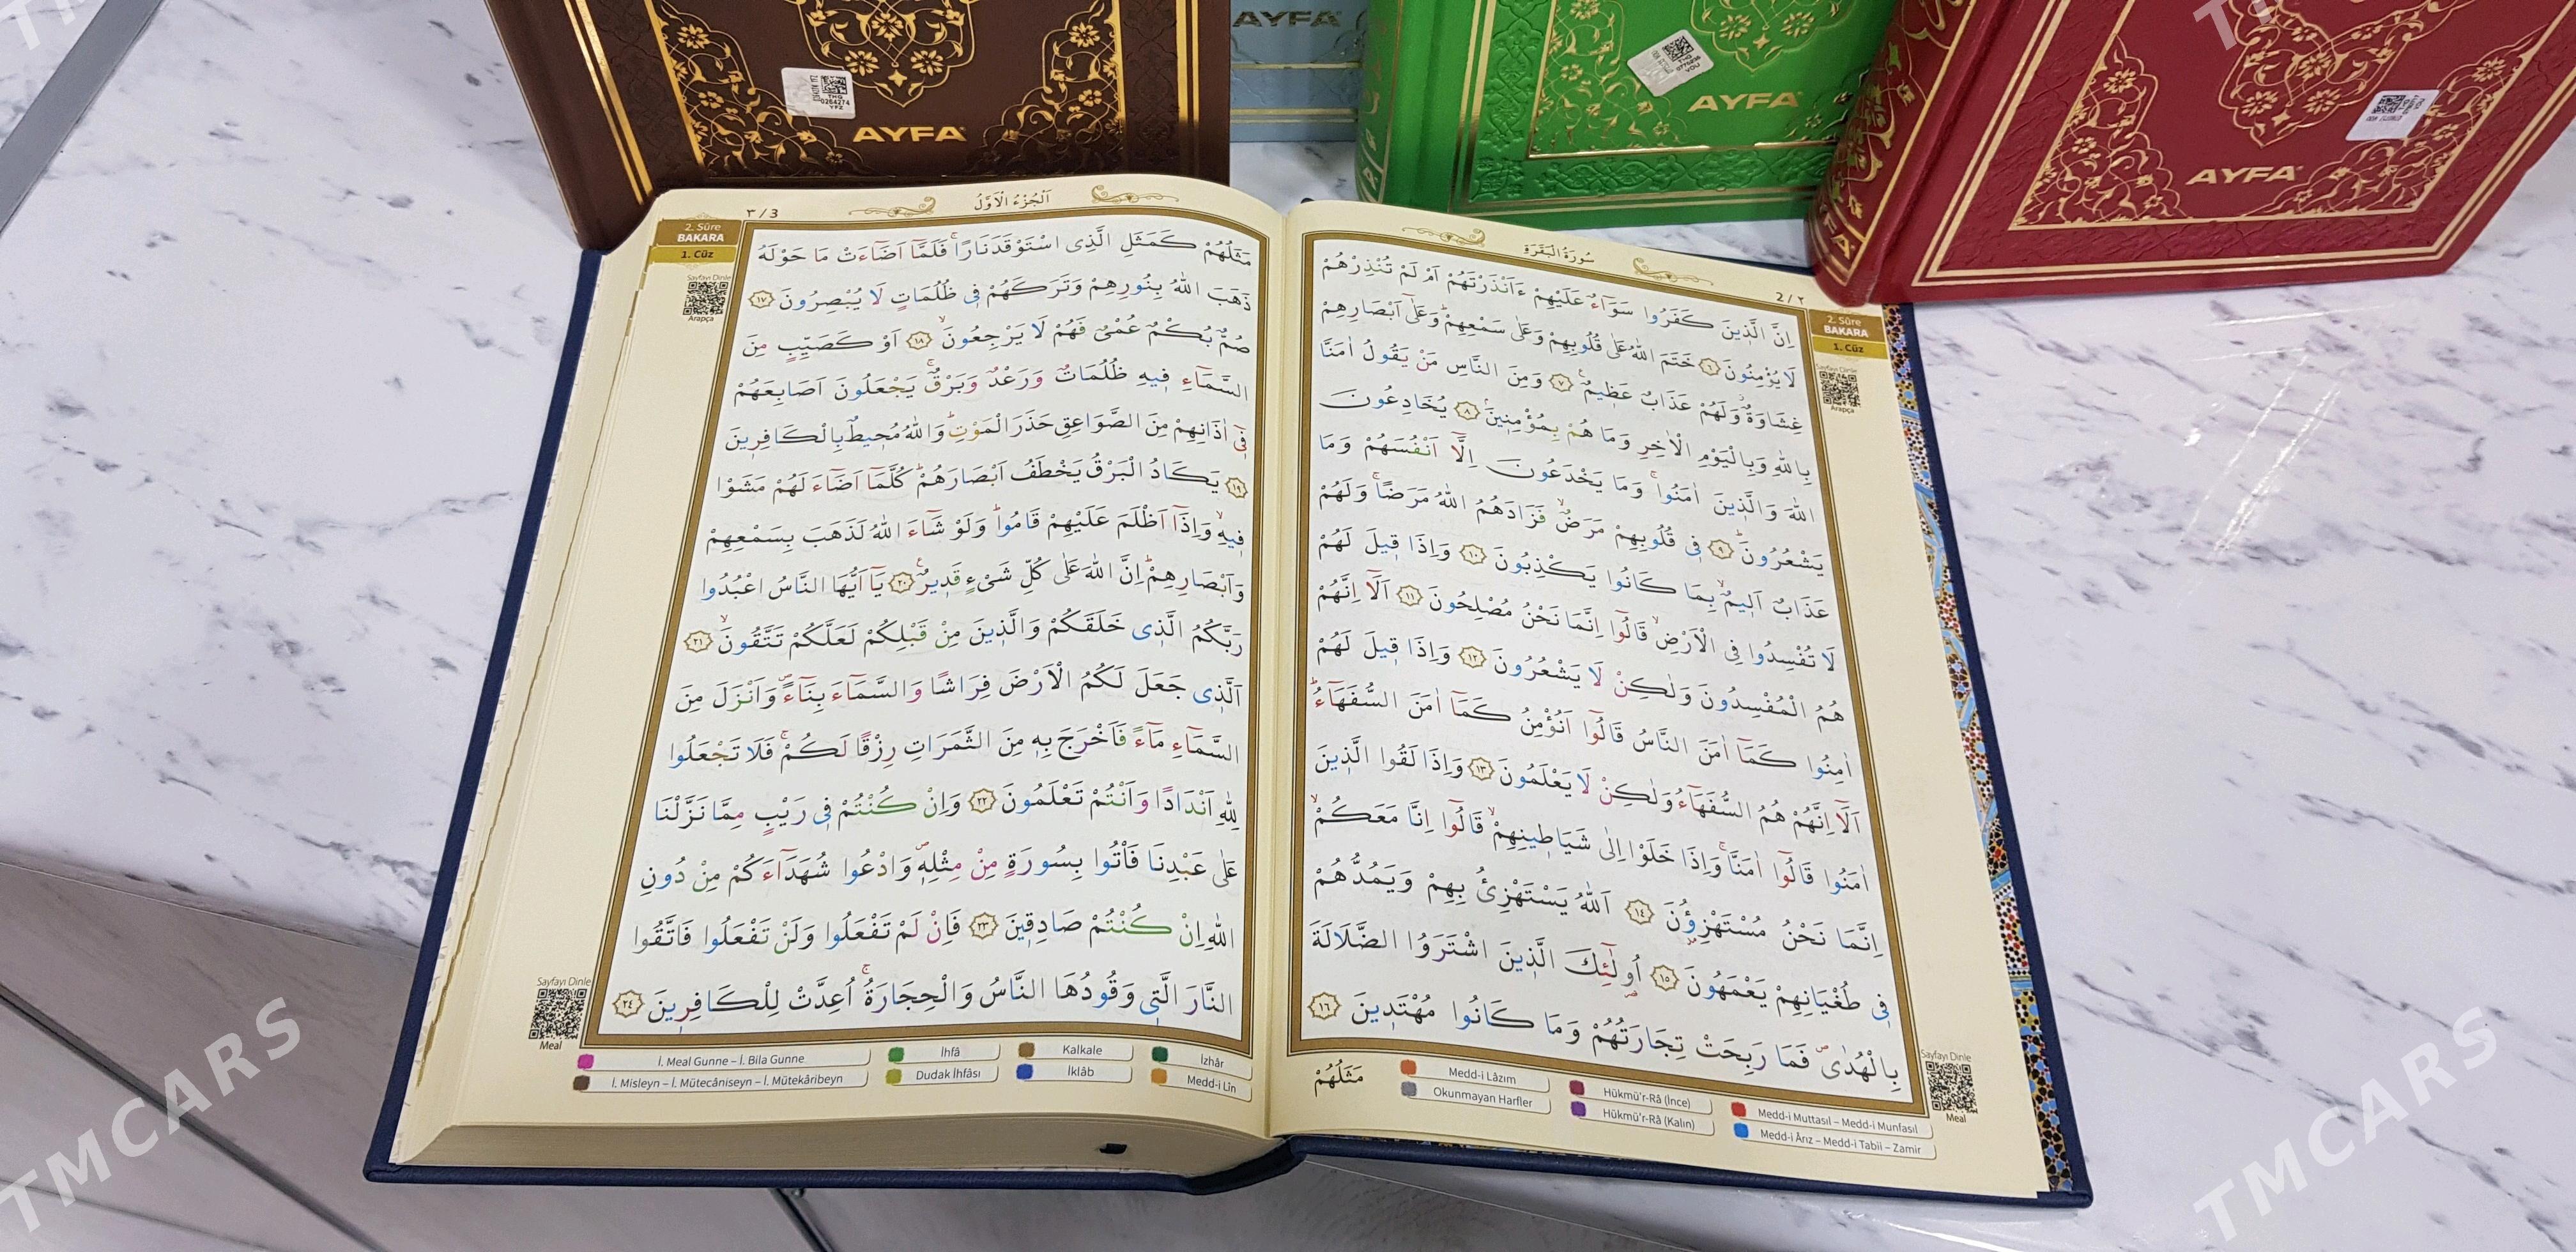 AYFA
AYFA
AYFA
AYFA
THG
0264274
YFZ
TMCARS
TMCARS
سُورَةُ الْبَقَرَةِ
2 / ٢
2. Sûre
BAKARA
1. Cüz
Sayfayı Dinle
Arapça
اِنَّ الَّذِينَ كَفَرُوا سَوَٓاءٌ عَلَيْهِمْ ءَاَنْذَرْتَهُمْ اَمْ لَمْ تُنْذِرْهُمْ
لَا يُؤْمِنُونَ ﴿٦﴾ خَتَمَ اللّٰهُ عَلٰى قُلُوبِهِمْ وَعَلٰى سَمْعِهِمْ وَعَلٰٓى اَبْصَارِهِمْ
غِشَاوَةٌ وَلَهُمْ عَذَابٌ عَظِيمٌ ﴿٧﴾ وَمِنَ النَّاسِ مَنْ يَقُولُ اٰمَنَّا
بِاللّٰهِ وَبِالْيَوْمِ الْاٰخِرِ وَمَا هُمْ بِمُؤْمِنِينَ ﴿٨﴾ يُخَادِعُونَ
اللّٰهَ وَالَّذِينَ اٰمَنُوا وَمَا يَخْدَعُونَ اِلَّٓا اَنْفُسَهُمْ وَمَا
يَشْعُرُونَ ﴿٩﴾ فِى قُلُوبِهِمْ مَرَضٌ فَزَادَهُمُ اللّٰهُ مَرَضًا وَلَهُمْ
عَذَابٌ اَلِيمٌ بِمَا كَانُوا يَكْذِبُونَ ﴿١٠﴾ وَاِذَا قِيلَ لَهُمْ
لَا تُفْسِدُوا فِى الْاَرْضِ قَالُٓوا اِنَّمَا نَحْنُ مُصْلِحُونَ ﴿١١﴾ اَلَٓا اِنَّهُمْ
هُمُ الْمُفْسِدُونَ وَلٰكِنْ لَا يَشْعُرُونَ ﴿١٢﴾ وَاِذَا قِيلَ لَهُمْ
اٰمِنُوا كَمَٓا اٰمَنَ النَّاسُ قَالُٓوا اَنُؤْمِنُ كَمَٓا اٰمَنَ السُّفَهَٓاءُ
اَلَٓا اِنَّهُمْ هُمُ السُّفَهَٓاءُ وَلٰكِنْ لَا يَعْلَمُونَ ﴿١٣﴾ وَاِذَا لَقُوا الَّذِينَ
اٰمَنُوا قَالُٓوا اٰمَنَّا وَاِذَا خَلَوْا اِلٰى شَيَاطِينِهِمْ قَالُٓوا اِنَّا مَعَكُمْ
اِنَّمَا نَحْنُ مُسْتَهْزِؤُنَ ﴿١٤﴾ اَللّٰهُ يَسْتَهْزِئُ بِهِمْ وَيَمُدُّهُمْ
فِى طُغْيَانِهِمْ يَعْمَهُونَ ﴿١٥﴾ اُولٰٓئِكَ الَّذِينَ اشْتَرَوُا الضَّلَالَةَ
بِالْهُدٰى فَمَا رَبِحَتْ تِجَارَتُهُمْ وَمَا كَانُوا مُهْتَدِينَ ﴿١٦﴾
مَثَلُهُمْ
Medd-i Lâzım
Okunmayan Harfler
Hükmü'r-Râ (İnce)
Hükmü'r-Râ (Kalın)
Medd-i Muttasıl – Medd-i Munfasıl
Medd-i Ârız – Medd-i Tabii – Zamir
Sayfayı Dinle
Meal
اَلْجُزْءُ الْاَوَّلُ
٣ / 3
2. Sûre
BAKARA
1. Cüz
Sayfayı Dinle
Arapça
مَثَلُهُمْ كَمَثَلِ الَّذِى اسْتَوْقَدَ نَارًا فَلَمَّٓا اَضَٓاءَتْ مَا حَوْلَهُ
ذَهَبَ اللّٰهُ بِنُورِهِمْ وَتَرَكَهُمْ فِى ظُلُمَاتٍ لَا يُبْصِرُونَ ﴿١٧﴾
صُمٌّ بُكْمٌ عُمْىٌ فَهُمْ لَا يَرْجِعُونَ ﴿١٨﴾ اَوْ كَصَيِّبٍ مِنَ
السَّمَٓاءِ فِيهِ ظُلُمَاتٌ وَرَعْدٌ وَبَرْقٌ يَجْعَلُونَ اَصَابِعَهُمْ
فِٓى اٰذَانِهِمْ مِنَ الصَّوَاعِقِ حَذَرَ الْمَوْتِ وَاللّٰهُ مُحِيطٌ بِالْكَافِرِينَ
﴿١٩﴾ يَكَادُ الْبَرْقُ يَخْطَفُ اَبْصَارَهُمْ كُلَّمَٓا اَضَٓاءَ لَهُمْ مَشَوْا
فِيهِ وَاِذَٓا اَظْلَمَ عَلَيْهِمْ قَامُوا وَلَوْ شَٓاءَ اللّٰهُ لَذَهَبَ بِسَمْعِهِمْ
وَاَبْصَارِهِمْ اِنَّ اللّٰهَ عَلٰى كُلِّ شَىْءٍ قَدِيرٌ ﴿٢٠﴾ يَٓا اَيُّهَا النَّاسُ اعْبُدُوا
رَبَّكُمُ الَّذِى خَلَقَكُمْ وَالَّذِينَ مِنْ قَبْلِكُمْ لَعَلَّكُمْ تَتَّقُونَ ﴿٢١﴾
اَلَّذِى جَعَلَ لَكُمُ الْاَرْضَ فِرَاشًا وَالسَّمَٓاءَ بِنَٓاءً وَاَنْزَلَ مِنَ
السَّمَٓاءِ مَٓاءً فَاَخْرَجَ بِهِ مِنَ الثَّمَرَاتِ رِزْقًا لَكُمْ فَلَا تَجْعَلُوا
لِلّٰهِ اَنْدَادًا وَاَنْتُمْ تَعْلَمُونَ ﴿٢٢﴾ وَاِنْ كُنْتُمْ فِى رَيْبٍ مِمَّا نَزَّلْنَا
عَلٰى عَبْدِنَا فَأْتُوا بِسُورَةٍ مِنْ مِثْلِهِ وَادْعُوا شُهَدَٓاءَكُمْ مِنْ دُونِ
اللّٰهِ اِنْ كُنْتُمْ صَادِقِينَ ﴿٢٣﴾ فَاِنْ لَمْ تَفْعَلُوا وَلَنْ تَفْعَلُوا فَاتَّقُوا
النَّارَ الَّتِى وَقُودُهَا النَّاسُ وَالْحِجَارَةُ اُعِدَّتْ لِلْكَافِرِينَ ﴿٢٤﴾
Sayfayı Dinle
Meal
İ. Meal Gunne – İ. Bila Gunne
İ. Misleyn – İ. Mütecâniseyn – İ. Mütekâribeyn
İhfâ
Dudak İhfâsı
Kalkale
İklâb
İzhâr
Medd-i Lîn